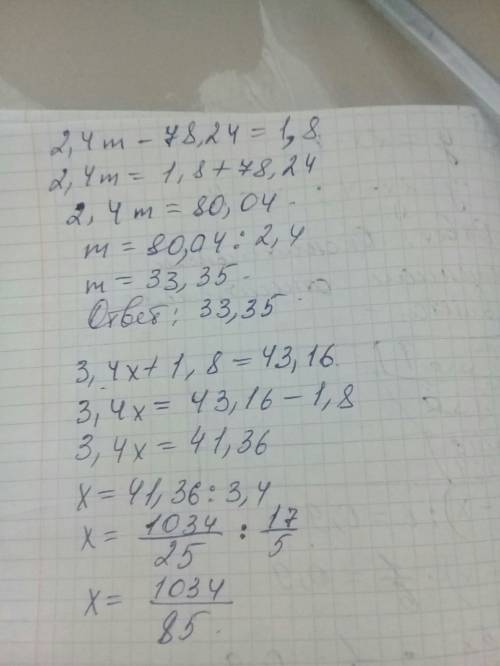 2,4m - 78,24 = 1,8
2,4m = 1,8 + 78,24
2,4m = 80,04
m = 80,04 : 2,4
m = 33,35
Ответ: 33,35
3,4x + 1,8 = 43,16
3,4x = 43,16 - 1,8
3,4x = 41,36
x = 41,36 : 3,4
x = 1034/25 : 17/5
x = 1034/85